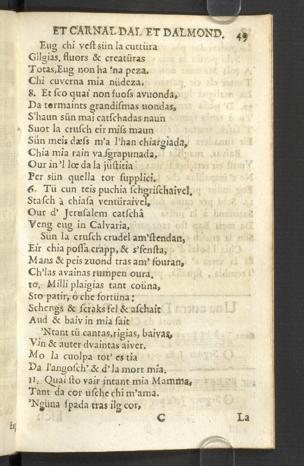 ET CARNAL DAL ET DALMOND. 49
Eug chi vest sün la cuttüra
Gilgias, fluors & creatüras
Totas, Eug non ha 'na peza.
Chi cuverna mia nüdeza.
8. Et sco quai non fuoss avuonda,
Da tormaints grandismas uondas,
S'haun sün mai catschadas naun
Suot la crusch eir miss maun
Sün meis dæss m'a l'han chiargiada,
Chia mia rain va sgrapunada,
Our in'l lœ da la jüstitia
Per sün quella tor supplici.
6. Tü cun teis puchia schgrischaivel,
Stasch à chiasa ventüraivel,
Our d' Jerusalem catschà
Veng eug in Calvaria,
Sün la crusch crudel am'stendan,
Eir chia possa crapp, & s'fensta,
Mans & peis zuond tras am' fouran,
Ch'las avainas rumpen oura.
10. Milli plaigias tant coüna,
Sto patir, ô che fortüna!
Schengs & scraks fel & aschait
Aud & baiv in mia sait
'Ntant tü cantas, rigias, baivas,
Vin & auter dvaintas aiver.
Mo la cuolpa tot' es tia
Da l'angosch' & d'la mort mia.
11. Quai sto vair intant mia Mamma,
Tant da cor usche chi m'ama.
'Ngüna spada tras ilg cor,
C La